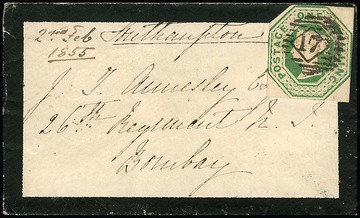 2nd Feb
1855
Southampton
J. T. Annesley Esq
26th Regiment N. I.
Bombay
POSTAGE ONE SHILLING
17